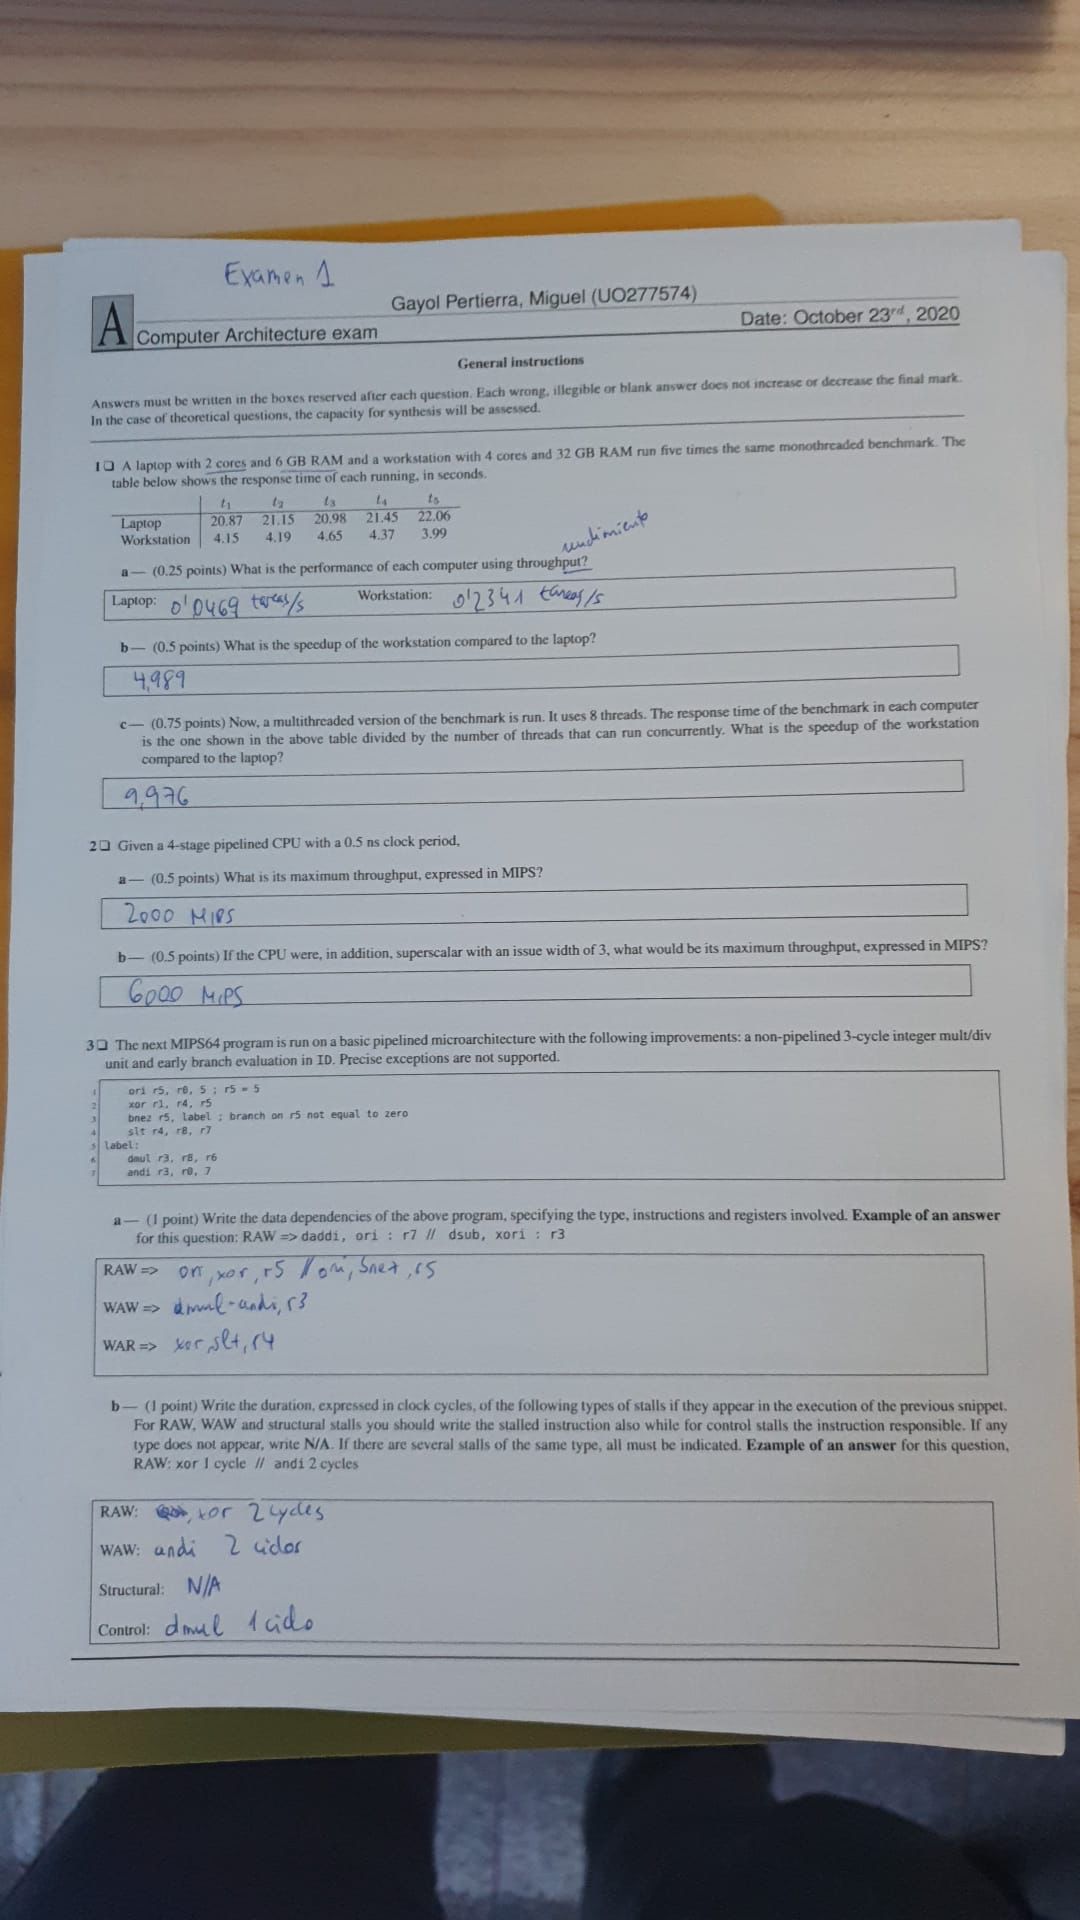 Examen 1
A
Gayol Pertierra, Miguel (UO277574)
Computer Architecture exam
Date: October 23rd, 2020
General instructions
Answers must be written in the boxes reserved after each question. Each wrong, illegible or blank answer does not increase or decrease the final mark.
In the case of theoretical questions, the capacity for synthesis will be assessed.
1❑ A laptop with 2 cores and 6 GB RAM and a workstation with 4 cores and 32 GB RAM run five times the same monothreaded benchmark. The
table below shows the response time of each running, in seconds.
t1 t2 t3 t4 t5
Laptop 20.87 21.15 20.98 21.45 22.06
Workstation 4.15 4.19 4.65 4.37 3.99
rendimiento
a— (0.25 points) What is the performance of each computer using throughput?
Laptop: 0'0469 tareas/s Workstation: 0'2341 tareas/s
b— (0.5 points) What is the speedup of the workstation compared to the laptop?
4,989
c— (0.75 points) Now, a multithreaded version of the benchmark is run. It uses 8 threads. The response time of the benchmark in each computer
is the one shown in the above table divided by the number of threads that can run concurrently. What is the speedup of the workstation
compared to the laptop?
9,976
2❑ Given a 4-stage pipelined CPU with a 0.5 ns clock period,
a— (0.5 points) What is its maximum throughput, expressed in MIPS?
2000 MIPS
b— (0.5 points) If the CPU were, in addition, superscalar with an issue width of 3, what would be its maximum throughput, expressed in MIPS?
6000 MIPS
3❑ The next MIPS64 program is run on a basic pipelined microarchitecture with the following improvements: a non-pipelined 3-cycle integer mult/div
unit and early branch evaluation in ID. Precise exceptions are not supported.
1 ori r5, r0, 5 ; r5 = 5
2 xor r1, r4, r5
3 bnez r5, label ; branch on r5 not equal to zero
4 slt r4, r8, r7
5 label:
6 dmul r3, r8, r6
7 andi r3, r0, 7
a— (1 point) Write the data dependencies of the above program, specifying the type, instructions and registers involved. Example of an answer
for this question: RAW => daddi, ori : r7 // dsub, xori : r3
RAW => ori, xor, r5 // ori, bnez, r5
WAW => dmul-andi, r3
WAR => xor, slt, r4
b— (1 point) Write the duration, expressed in clock cycles, of the following types of stalls if they appear in the execution of the previous snippet.
For RAW, WAW and structural stalls you should write the stalled instruction also while for control stalls the instruction responsible. If any
type does not appear, write N/A. If there are several stalls of the same type, all must be indicated. Ezample of an answer for this question,
RAW: xor 1 cycle // andi 2 cycles
RAW: , xor 2 cycles
WAW: andi 2 ciclos
Structural: N/A
Control: dmul 1 ciclo